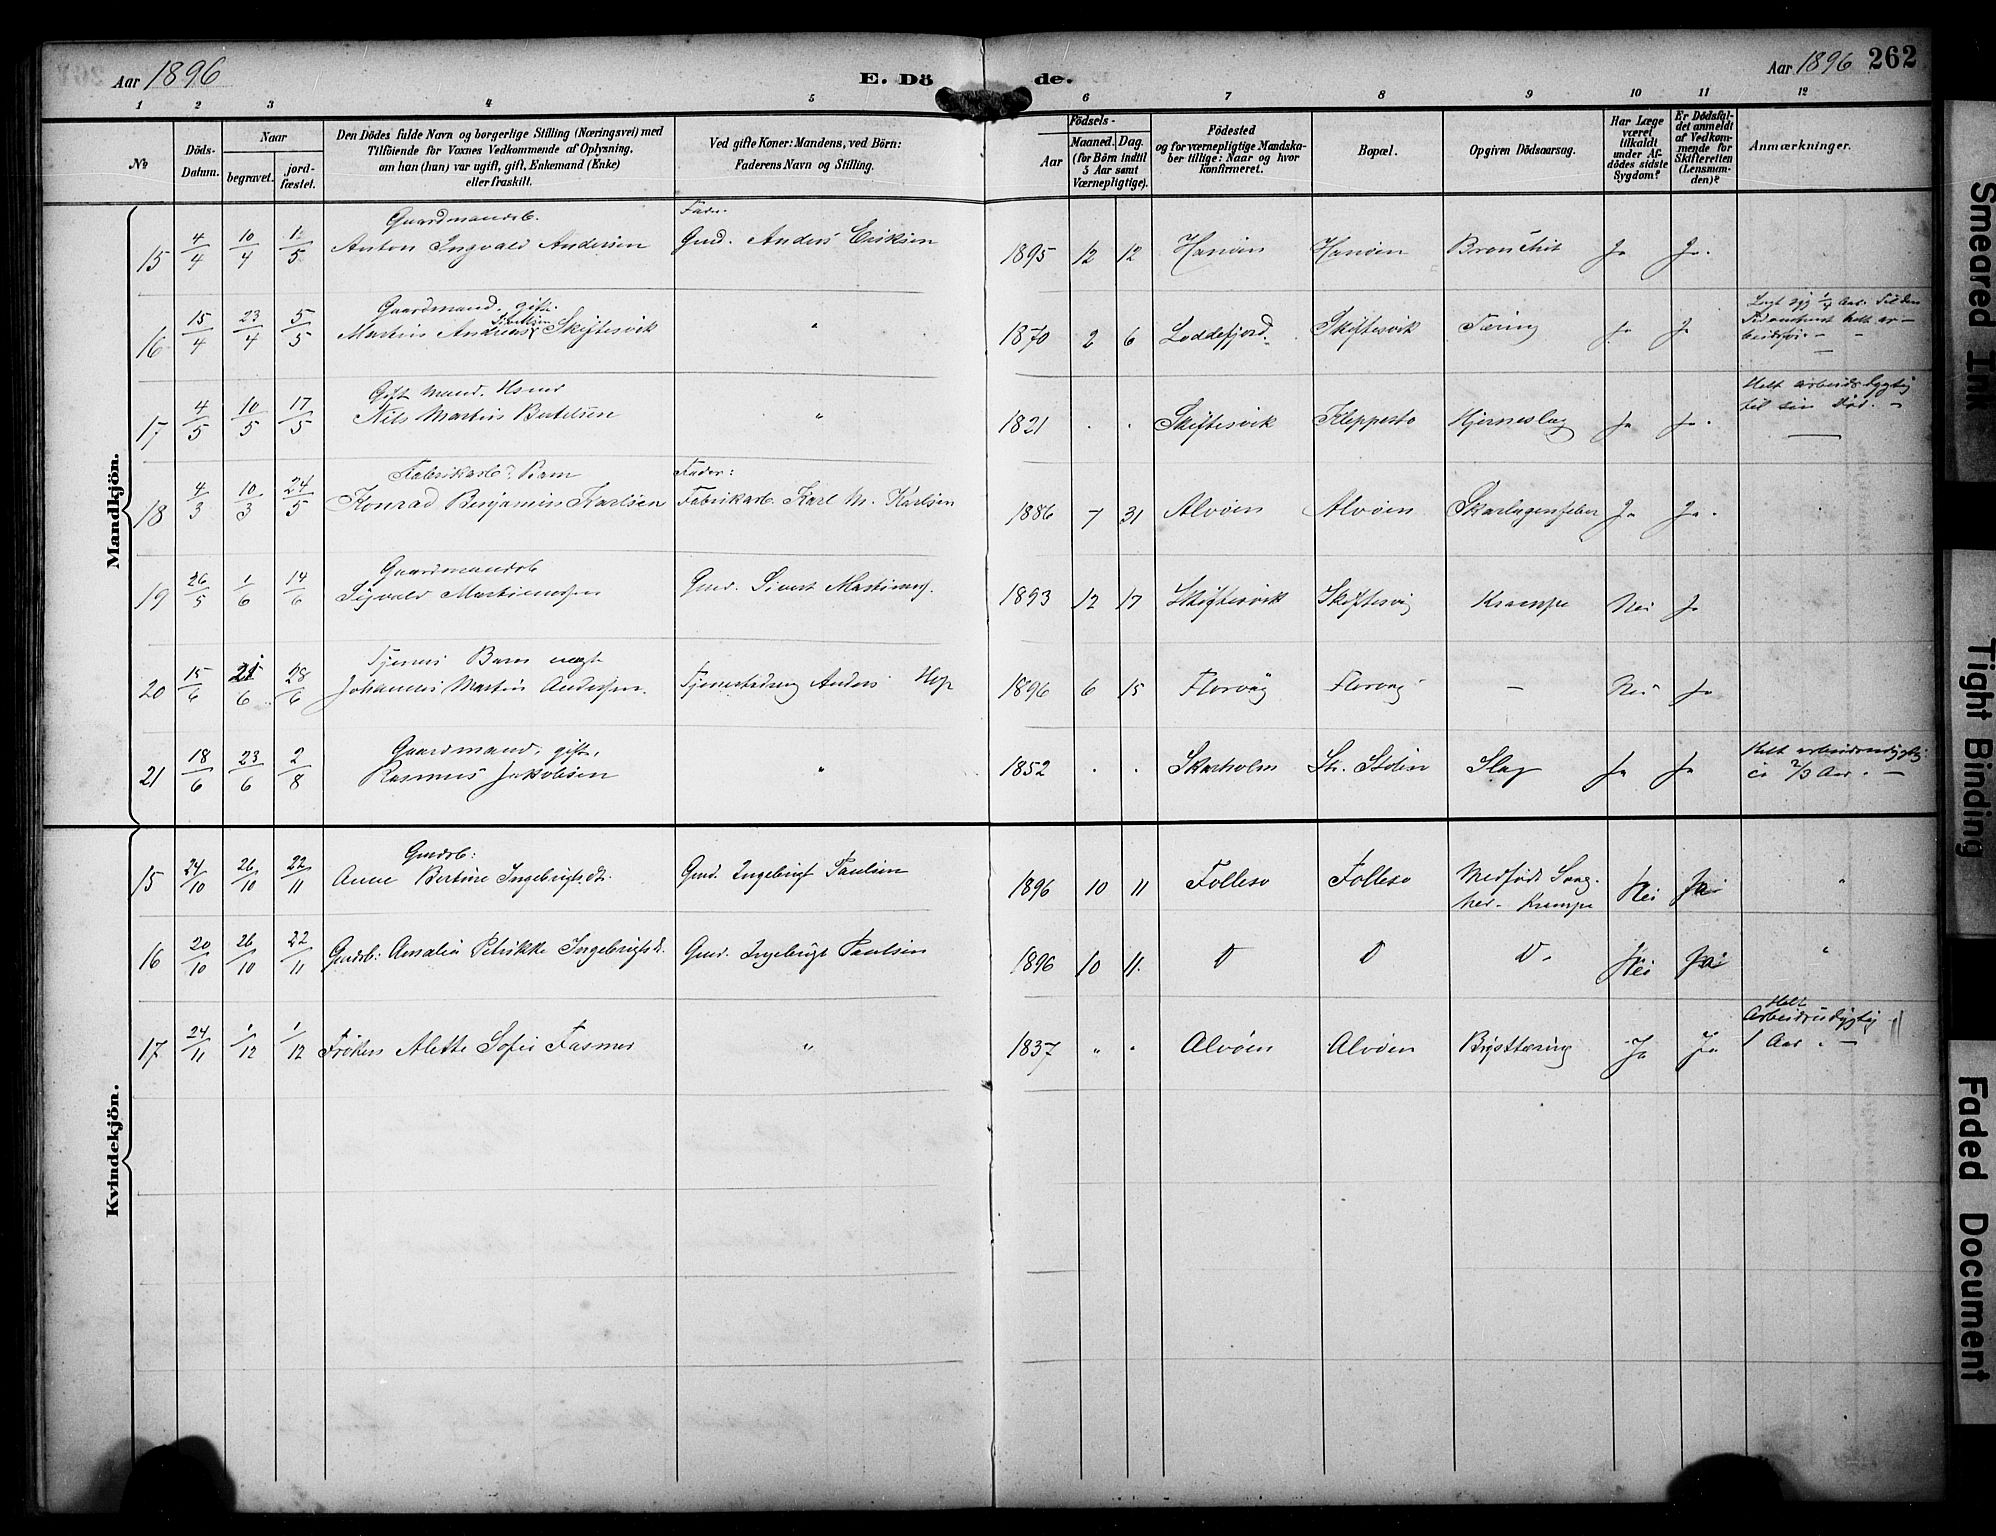 Aar 1896
E. Döde.
Aar 1896 262
1 2 3 4 5 6 7 8 9 10 11 12
№
Döds-Datum.
Naar
begravet.
jordfæstet.
Den Dödes fulde Navn og borgerlige Stilling (Næringsvei) med
Tilföiende for Voxnes Vedkommende af Oplysning,
om han (hun) var ugift, gift, Enkemand (Enke)
eller fraskilt.
Ved gifte Koner: Mandens, ved Börn:
Faderens Navn og Stilling.
Födsels-
Aar
Maaned. Dag.
(for Börn indtil
5 Aar samt
Værnepligtige).
Födested
og for værnepligtige Mandskaber tillige: Naar og hvor
konfirmeret.
Bopæl.
Opgiven Dödsaarsag.
Har Læge
været
tilkaldt
under Afdödes sidste
Sygdom?
Er Dödsfaldet anmeldt
af Vedkommende for
Skifteretten
(Lensmanden)?
Anmærkninger.
Mandkjön.
Gaardmandsb. Fader.
15 4/4 10/4 5 Anton Ingvald Andersen Gmd. Anders Eriksen 1895 12 12 Hanöen Hanöen Bronchit Ja Ja.
Gaardmand, gift.
16 15/4 23/4 5/5 Martin Andreas Skiftesvik " 1870 2 6 Loddefjord. Skiftesvik Tæring Ja Ja
Gift Mand, Hsmd
17 4/5 10/5 17/5 Nils Martin Bertelsen " 1821 . . Skiftesvik Kleppestö Hjerneslag Ja Ja. Helt arbeidsdygtig
til sin Död. —
Fabrikarb. Barn Fader:
18 4/3 10/3 24/5 Konrad Benjamin Karlsen Fabrikarb. Karl M. Karlsen 1886 7 31 Alvöen Alvöen Skarlagensfeber Ja Ja.
Gaardmandsb
19 26/5 1/6 14/6 Sigvald Martinussen Gmd. Sivert Martinuss. 1893 12 17 Skiftesvik Skiftesvig Krampe Nei Ja
Tjeners Barn uægte
20 15/6 21/6 28/6 Johannes Martin Anderssen. Tjenestedreng Anders Hop 1896 6 15 Florvåg Florvåg — Nei Ja
Gaardmand, gift,
21 18/6 23/6 2/8 Rasmus Jakobsen " 1852 . . Skarholm Slag Ja Ja Helt arbeidsudygtig
ca 2/3 Aar. —
Kvindekjön.
Gmdsb:
15 24/10 26/10 22/11 Anne Bertine Ingebrigtsdt. Gmd. Ingebrigt Paulsen 1896 10 11 Follesö Follesö Medfödt Svaghed. Krampe Nei Ja "
16 20/10 26/10 22/11 Gmdsb: Amalia Petrikke Ingebrigtsdt. Gmd. Ingebrigt Paulsen 1896 10 11. D D D. Nei Ja "
17 24/11 1/12 1/12 Fröken Alette Sofie Fasmer " 1837 " " Alvöen Alvöen Brysttæring Ja Ja Helt
Arbeidsudygtig
1 Aar. —
Smeared Ink
Tight Binding
Faded Document